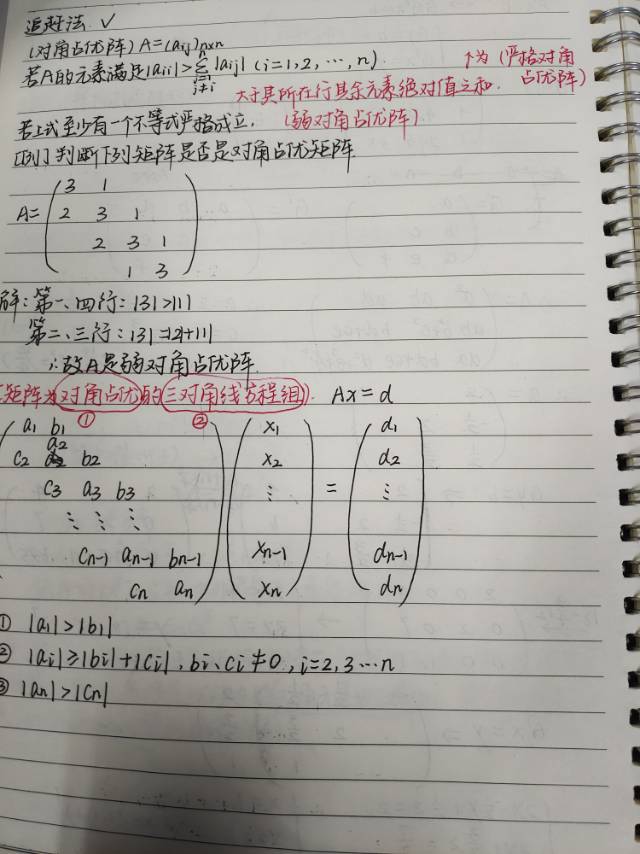 追赶法 ✓
(对角占优阵) A=(aij)n×n
若A的元素满足|aii|>∑|aij| (i=1,2,…,n) 个为(严格对角
n j=1 j≠i
占优阵)
大于其所在行其余元素绝对值之和.
若上式至少有一个不等式严格成立. (弱对角占优阵)
[例1] 判断下列矩阵是否是对角占优矩阵.
3 1
A= 2 3 1
2 3 1
1 3
解: 第一、四行: |3|>|1|
第二、三行: |3|=|2+|1|
∴故A是弱对角占优阵.
矩阵为对角占优的三对角线方程组). Ax=d
① ②
a1 b1 x1 d1
a2
c2 b2 x2 d2
c3 a3 b3 ⋮ = ⋮
⋮ ⋮ ⋮
cn-1 an-1 bn-1 xn-1 dn-1
cn an xn dn
① |a1|>|b1|
② |ai|≥|bi|+|ci|, bi、ci≠0, i=2,3…n
③ |an|>|cn|